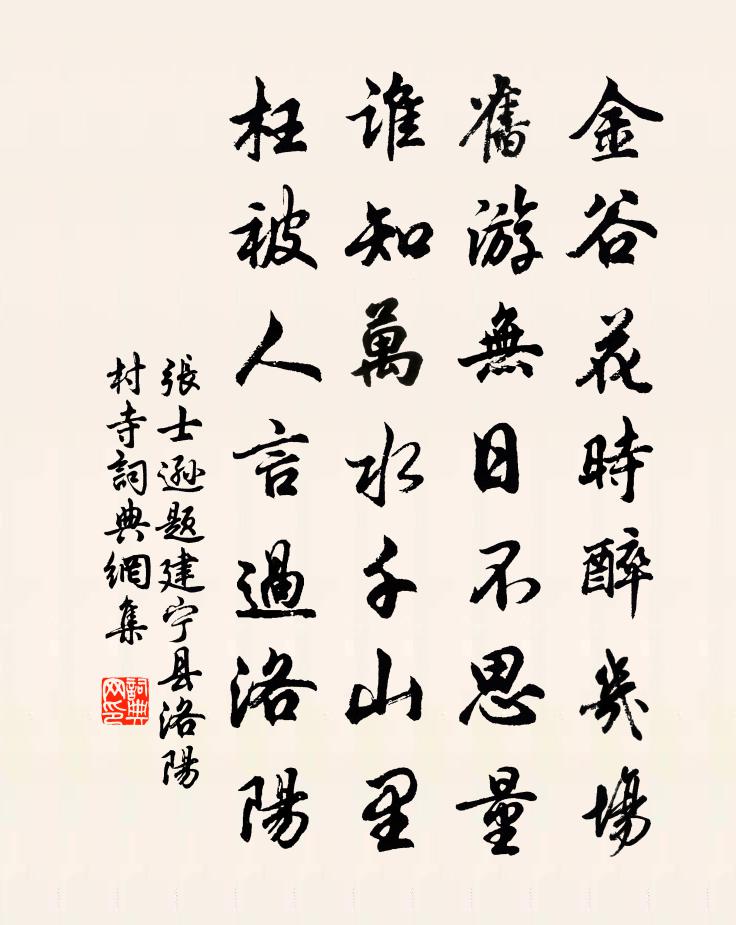 金谷花時醉幾場
舊游無日不思量
誰知萬水千山里
枉被人言過洛陽
張士遜題建宁县洛陽
村寺詞典網集
詞典网印